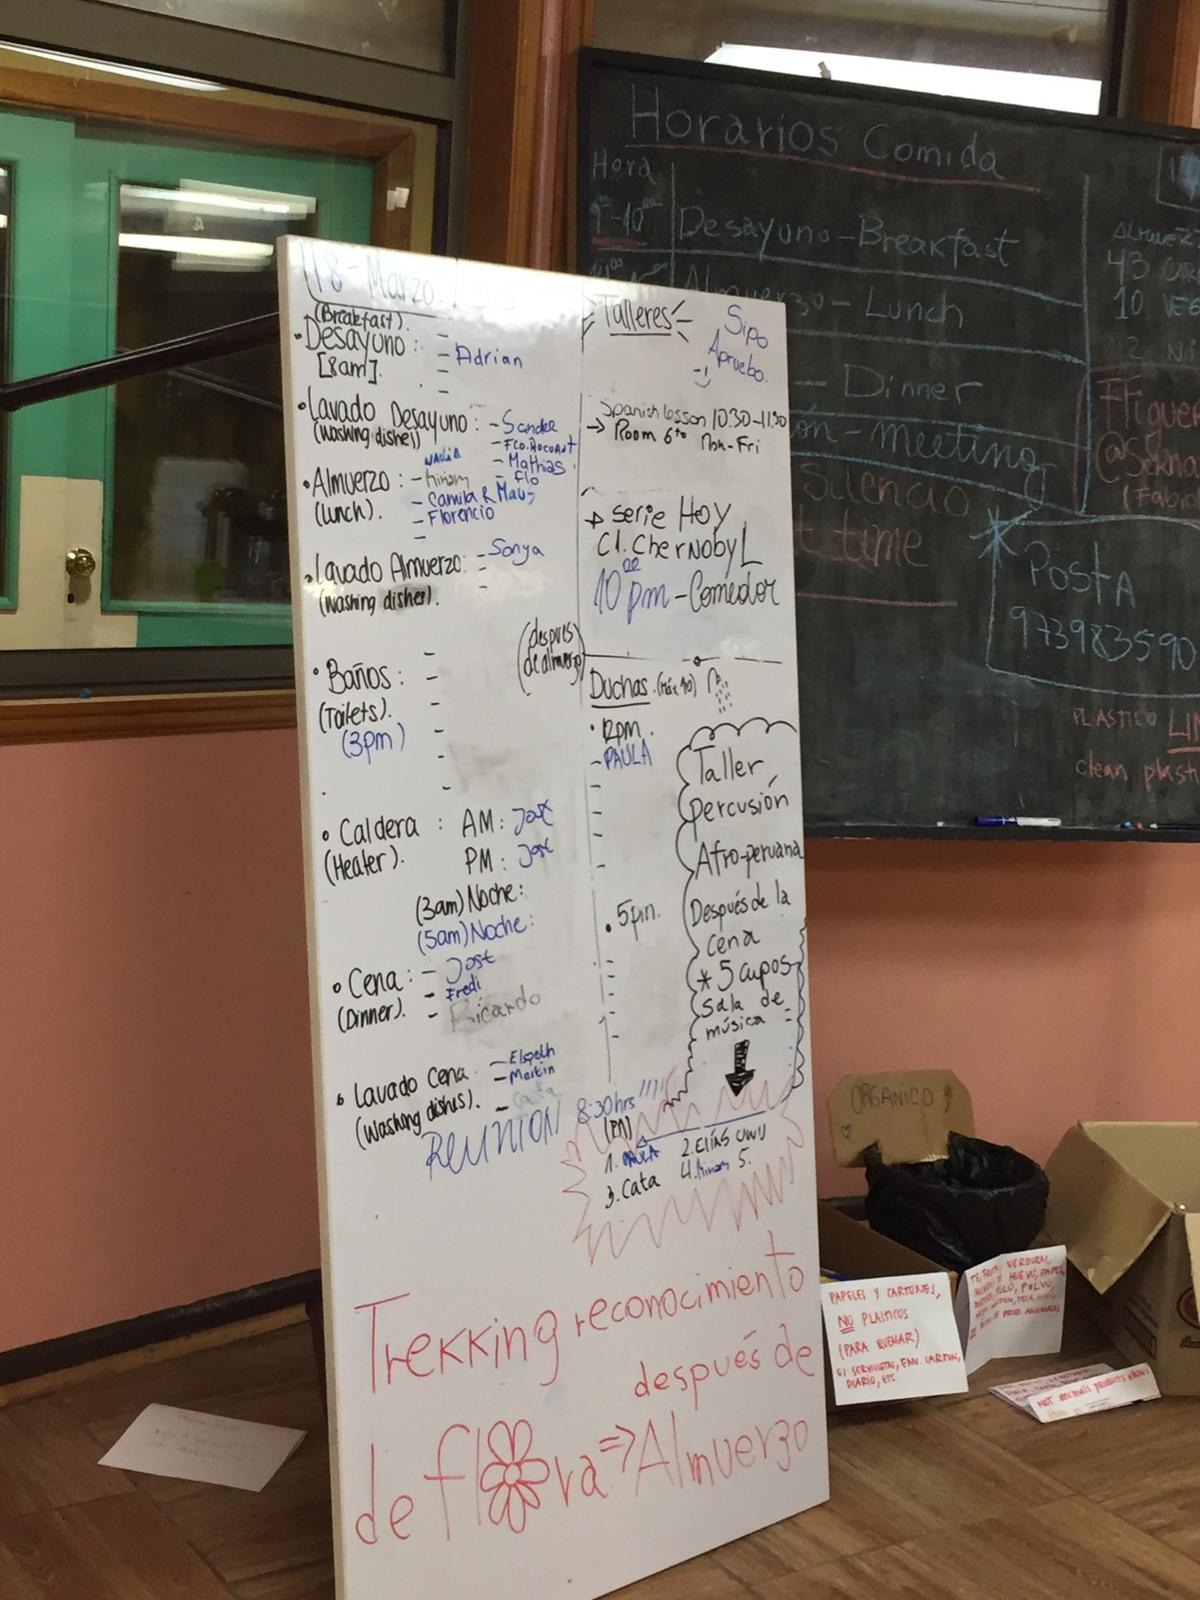 18-Marzo
(Breakfast).
• Desayuno :
[8am].
- Adrian
• Lavado Desayuno :
(Washing dishes)
- Sander
- Mathias
- Flo
• Almuerzo :
(Lunch).
- Camila &
- Florencio
• Lavado Almuerzo: - Sonya
(Washing dishes).
• Baños :
(Toilets).
(3pm)
(después
de almuerzo)
• Caldera : AM: Jost
(Heater). PM: Jost
(3am) Noche:
(5am) Noche:
• Cena : - Jost
(Dinner). - Fredi
- Ricardo
• Lavado Cena - Elspeth
(Washing dishes). - Martin
- Cata
REUNION 8:30hrs !!!!
(PM)
Talleres
Sipo
Apruebo.
:)
→ Spanish lesson 10:30-11:30
Room 6to Mon-Fri
→ serie Hoy
C1. CherNobyL
10:00 pm - Comedor
Duchas. (Máx 10)
• 12pm.
- PAULA
• 5pm.
Taller
percusión
Afro-peruana
Después de la
cena
* 5 cupos
Sala de
música
1. PAULA 2. ELÍAS UWU
3. Cata 4. Miriam 5.
Trekking reconocimiento
de flora ⇒ después de
Almuerzo
Horarios Comida
Hora
9:00-10:00 Desayuno-Breakfast
Almuerzo - Lunch
- Dinner
- meeting
Silencio
time
43
10
POSTA
973983590
PLASTICO
clean
ORGANICO
PAPELES Y CARTONES,
NO PLASTICOS
(PARA QUEMAR)
CARTON,
DIARIO, ETC
VERDURAS,
NOT animals products